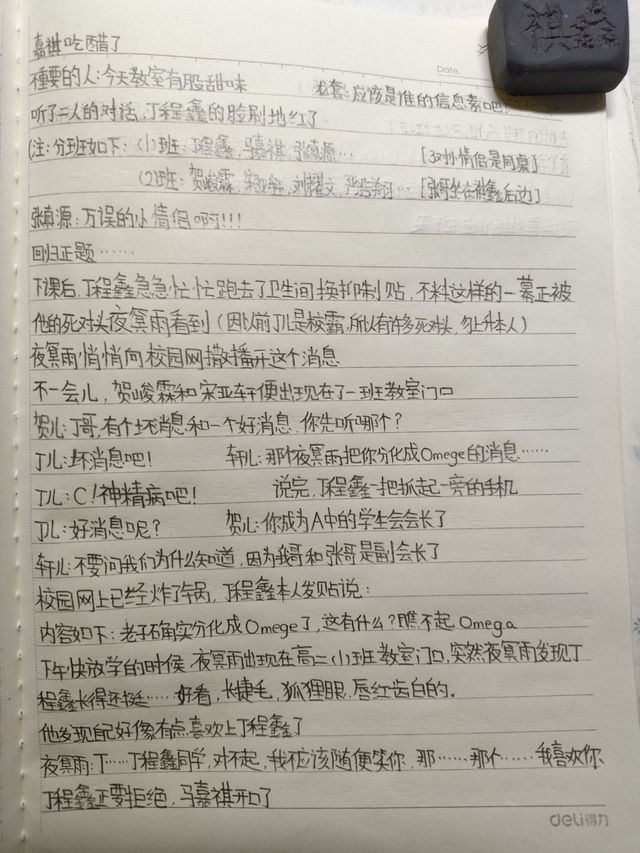 祺鑫
Date.
嘉祺吃醋了
種要的人:今天教室有股甜味 必套:应该是谁的信息素吧!
听了二人的对话,丁程鑫的脸刷地红了
(注:分班如下:(1)班:丁程鑫,马嘉祺,张真源… [3对小情侣是同桌]
(2)班:贺峻霖,宋亚轩,刘耀文,严浩翔… [张哥坐在祺鑫后边]
张真源:万误的小情侣啊!!!
回归正题……
下课后,丁程鑫急急忙忙跑去了卫生间换抑制贴,不料这样的一幕正被
他的死对头夜冥雨看到(因以前丁儿是校霸,所以有许多死对头,勿上升本人)
夜冥雨悄悄向校园网撒播开这个消息
不一会儿,贺峻霖和宋亚轩便出现在了一班教室门口
贺儿:丁哥,有个坏消息和一个好消息,你先听哪个?
丁儿:坏消息吧! 轩儿:那个夜冥雨把你分化成Omege的消息……
丁儿:C!神精病吧! 说完,丁程鑫一把抓起一旁的手机
丁儿:好消息呢? 贺儿:你成为A中的学生会会长了
轩儿:不要问我们为什么知道,因为我哥和张哥是副会长了
校园网上已经炸了锅,丁程鑫本人发贴说:
内容如下:老子确实分化成Omege了,这有什么?瞧不起Omega
下午快放学的时候,夜冥雨出现在高二(1)班教室门口,突然夜冥雨发现丁
程鑫长得还挺……好看,长捷毛,狐狸眼,唇红齿白的。
他发现自己好像有点喜欢上丁程鑫了
夜冥雨:丁……丁程鑫同学,对不起,我不应该随便笑你,那……那个……我喜欢你、
丁程鑫正要拒绝,马嘉祺开口了
deli得力